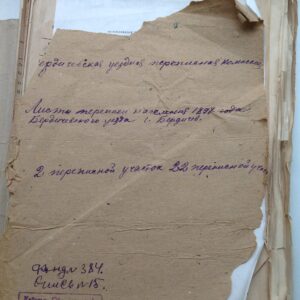 ердичевская уездная переписная комиссия
Листы переписи населения 1897 года
Бердичевского уезда г. Бердичев.
2 переписной участок 22 переписной уча
Фонд № 384.
Опись № 15.